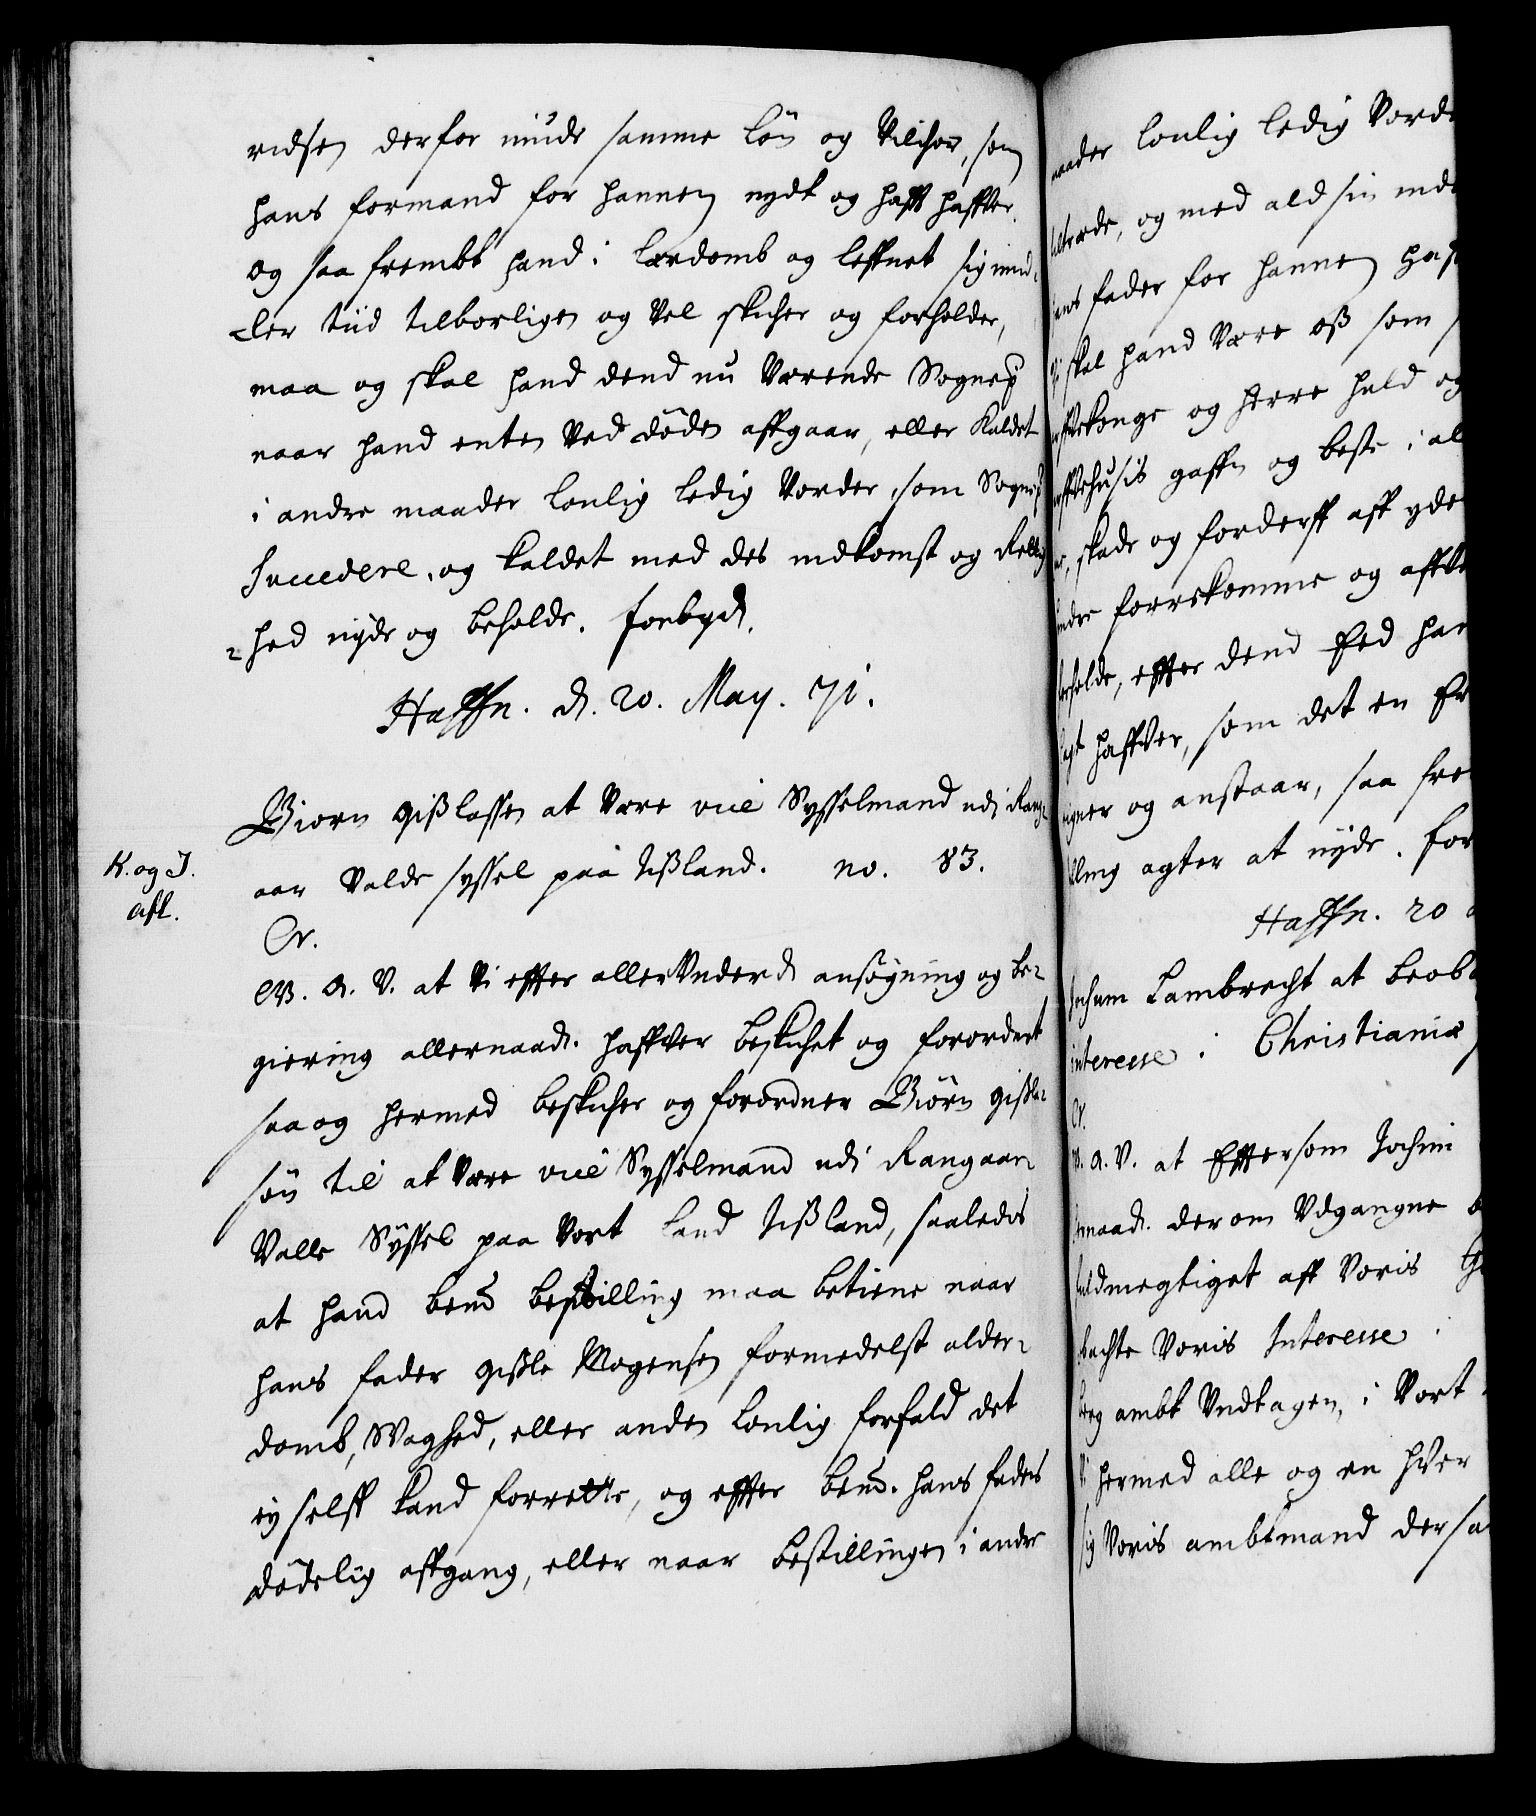 ridsen derfor niude samme Løn og Vilchor, som
hans formand for hannem nydt og hafft haffver.
og saa frembt hand i Lærdomb og leffnet sig imid-
ler tiid tilbørligen og Vel skicher og forholder,
maa og skal hand dend nu Værende Sognep
naar hand enten Ved døden affgaar, eller Kaldet
i andre maader lovlig ledig Vorder, som Sognep
Succedere, og kaldet med des indkomst og Rettig
-hed nyde og beholde. forbyd.
Haffn. d. 20. May. 71.
Biorn Gißlassen at Være vice Sysselmand udi Rang-
K. og I.
aar Valde syssel paa Ißland. no. 83.
afl.
Cr.
W. A. V. at Vi effter allerVnderd. ansøgning og be-
giering allernaad. haffver beskichet og forordnet
saa og hermed beskicher og forordner Biørn Gißle-
søn til at Være vice Sysselmand udi Rangaar
Valle Syssel paa Vort Land Ißland, saaledes
at hand bemd. bestilling maa betiene naar
hans fader Gißle Mogensen formedelst alder-
domb, Svaghed, eller anden lovlig forfald det
ey selff kand forrette, og effter bemd. hans faders
dødelig affgang, eller naar bestillingen i andre
maader lovlig ledig Vorde
tiltræde, og med ald sin ind
hans fader for hannem haf
skal hand Være oß som
konge og Herre huld og
husis gaffn og beste i al
skade og forderff aff yde
forrekomme og affve
holde, effter dend Eed han
lagt haffver, som det en Er
egner og anstaar, saa fre
lling agter at nyde. for
Haffn. 20
Jochum Lambrecht at beob
interesse i Christiania
Cr.
W. A. V. at Effter som Jochim
naad. derom Vdgangne
fuldmegtiget aff Voris
achte Voris Interesse
ambt Vndtagen, i Vort
Vi hermed alle og en hver
Voris ambtmand dersa